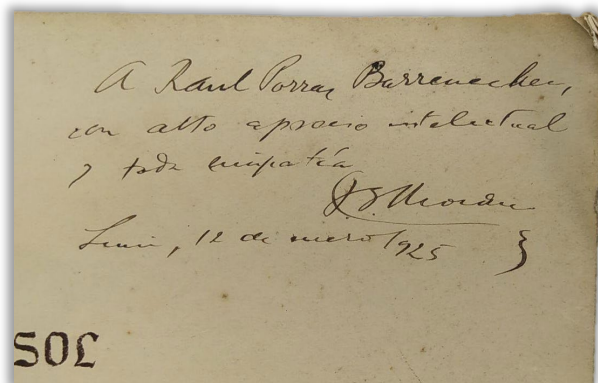 A Raúl Porras Barrenechea,
con alto aprecio intelectual
y toda simpatía
Lima, 12 de enero 1925
SOL